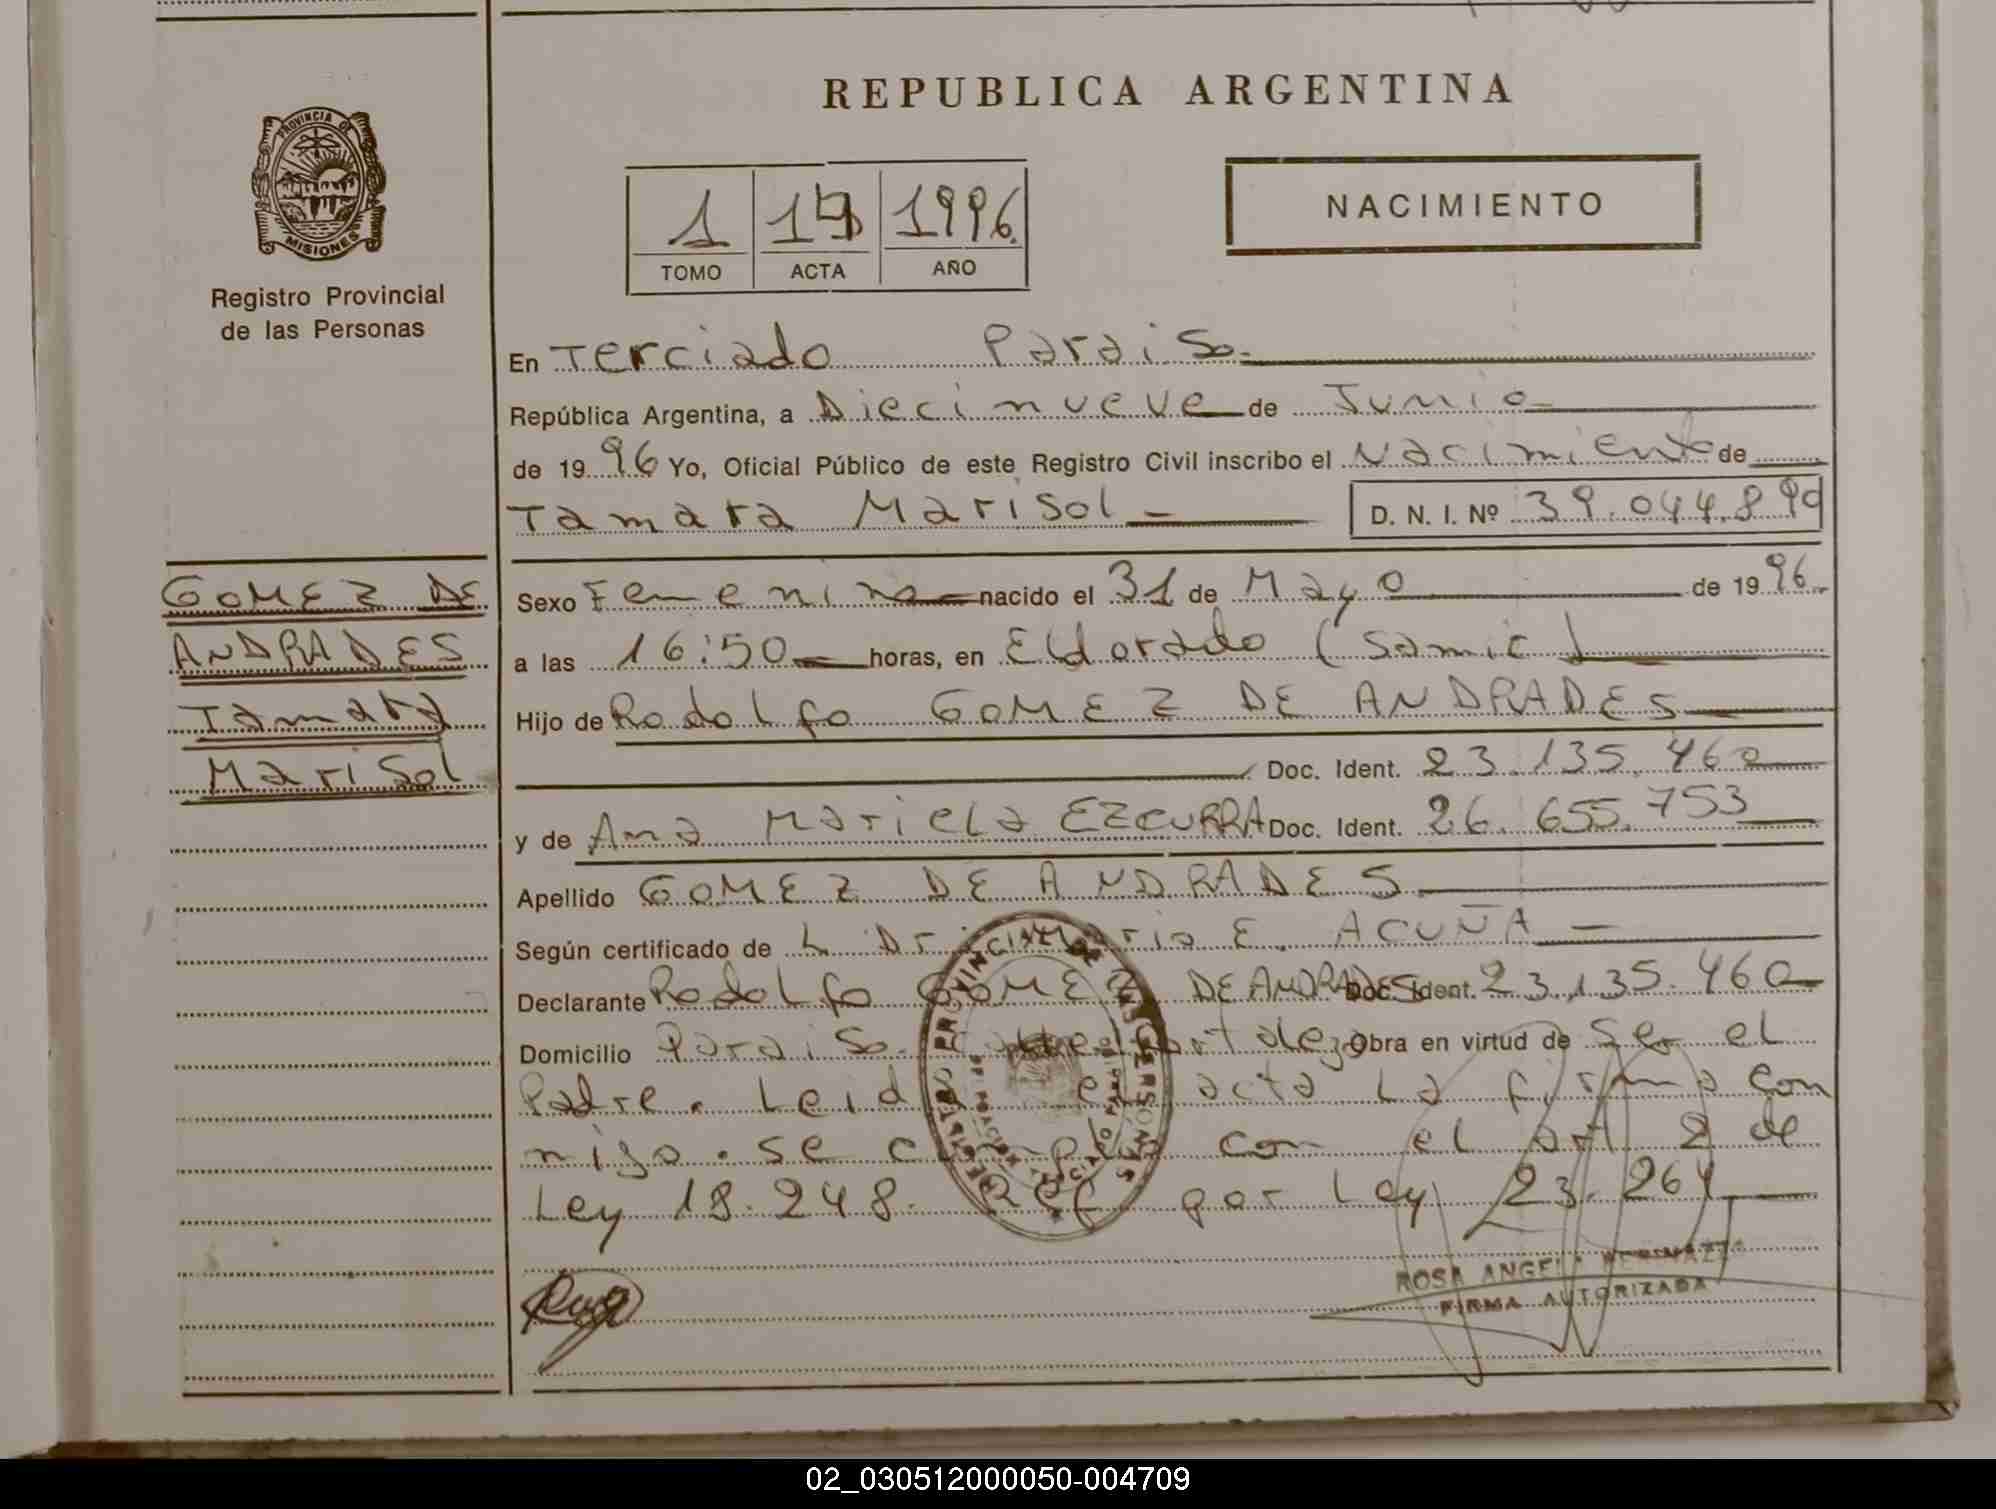 REPUBLICA ARGENTINA
PROVINCIA DE
MISIONES
Registro Provincial
de las Personas
1 1996
TOMO ACTA AÑO
NACIMIENTO
En Terciado Paraiso
República Argentina, a Diecinueve de Junio
de 1996 Yo, Oficial Público de este Registro Civil inscribo el Nacimiento de
Tamara Marisol D. N. I. Nº 39.044.890
GOMEZ DE
ANDRADES
Tamara
Marisol
Sexo Femenino nacido el 31 de Mayo de 1996
a las 16:50 horas, en Eldorado (Samic)
Hijo de Rodolfo GOMEZ DE ANDRADES
Doc. Ident. 23.135.460
y de Ana Mariela EZCURRA Doc. Ident. 26.655.753
Apellido GOMEZ DE ANDRADES
Según certificado de L. Dr. Mario E. ACUÑA
Declarante Rodolfo GOMEZ DE ANDRADES Doc. Ident. 23.135.460
Domicilio Paraiso. Obra en virtud de ser el
Padre. Leida el acta la firma con
migo. se cumplio con el art 2 de
Ley 18.248. Ref por Ley 23.264
ROSA ANGELA
FIRMA AUTORIZADA
02_030512000050-004709